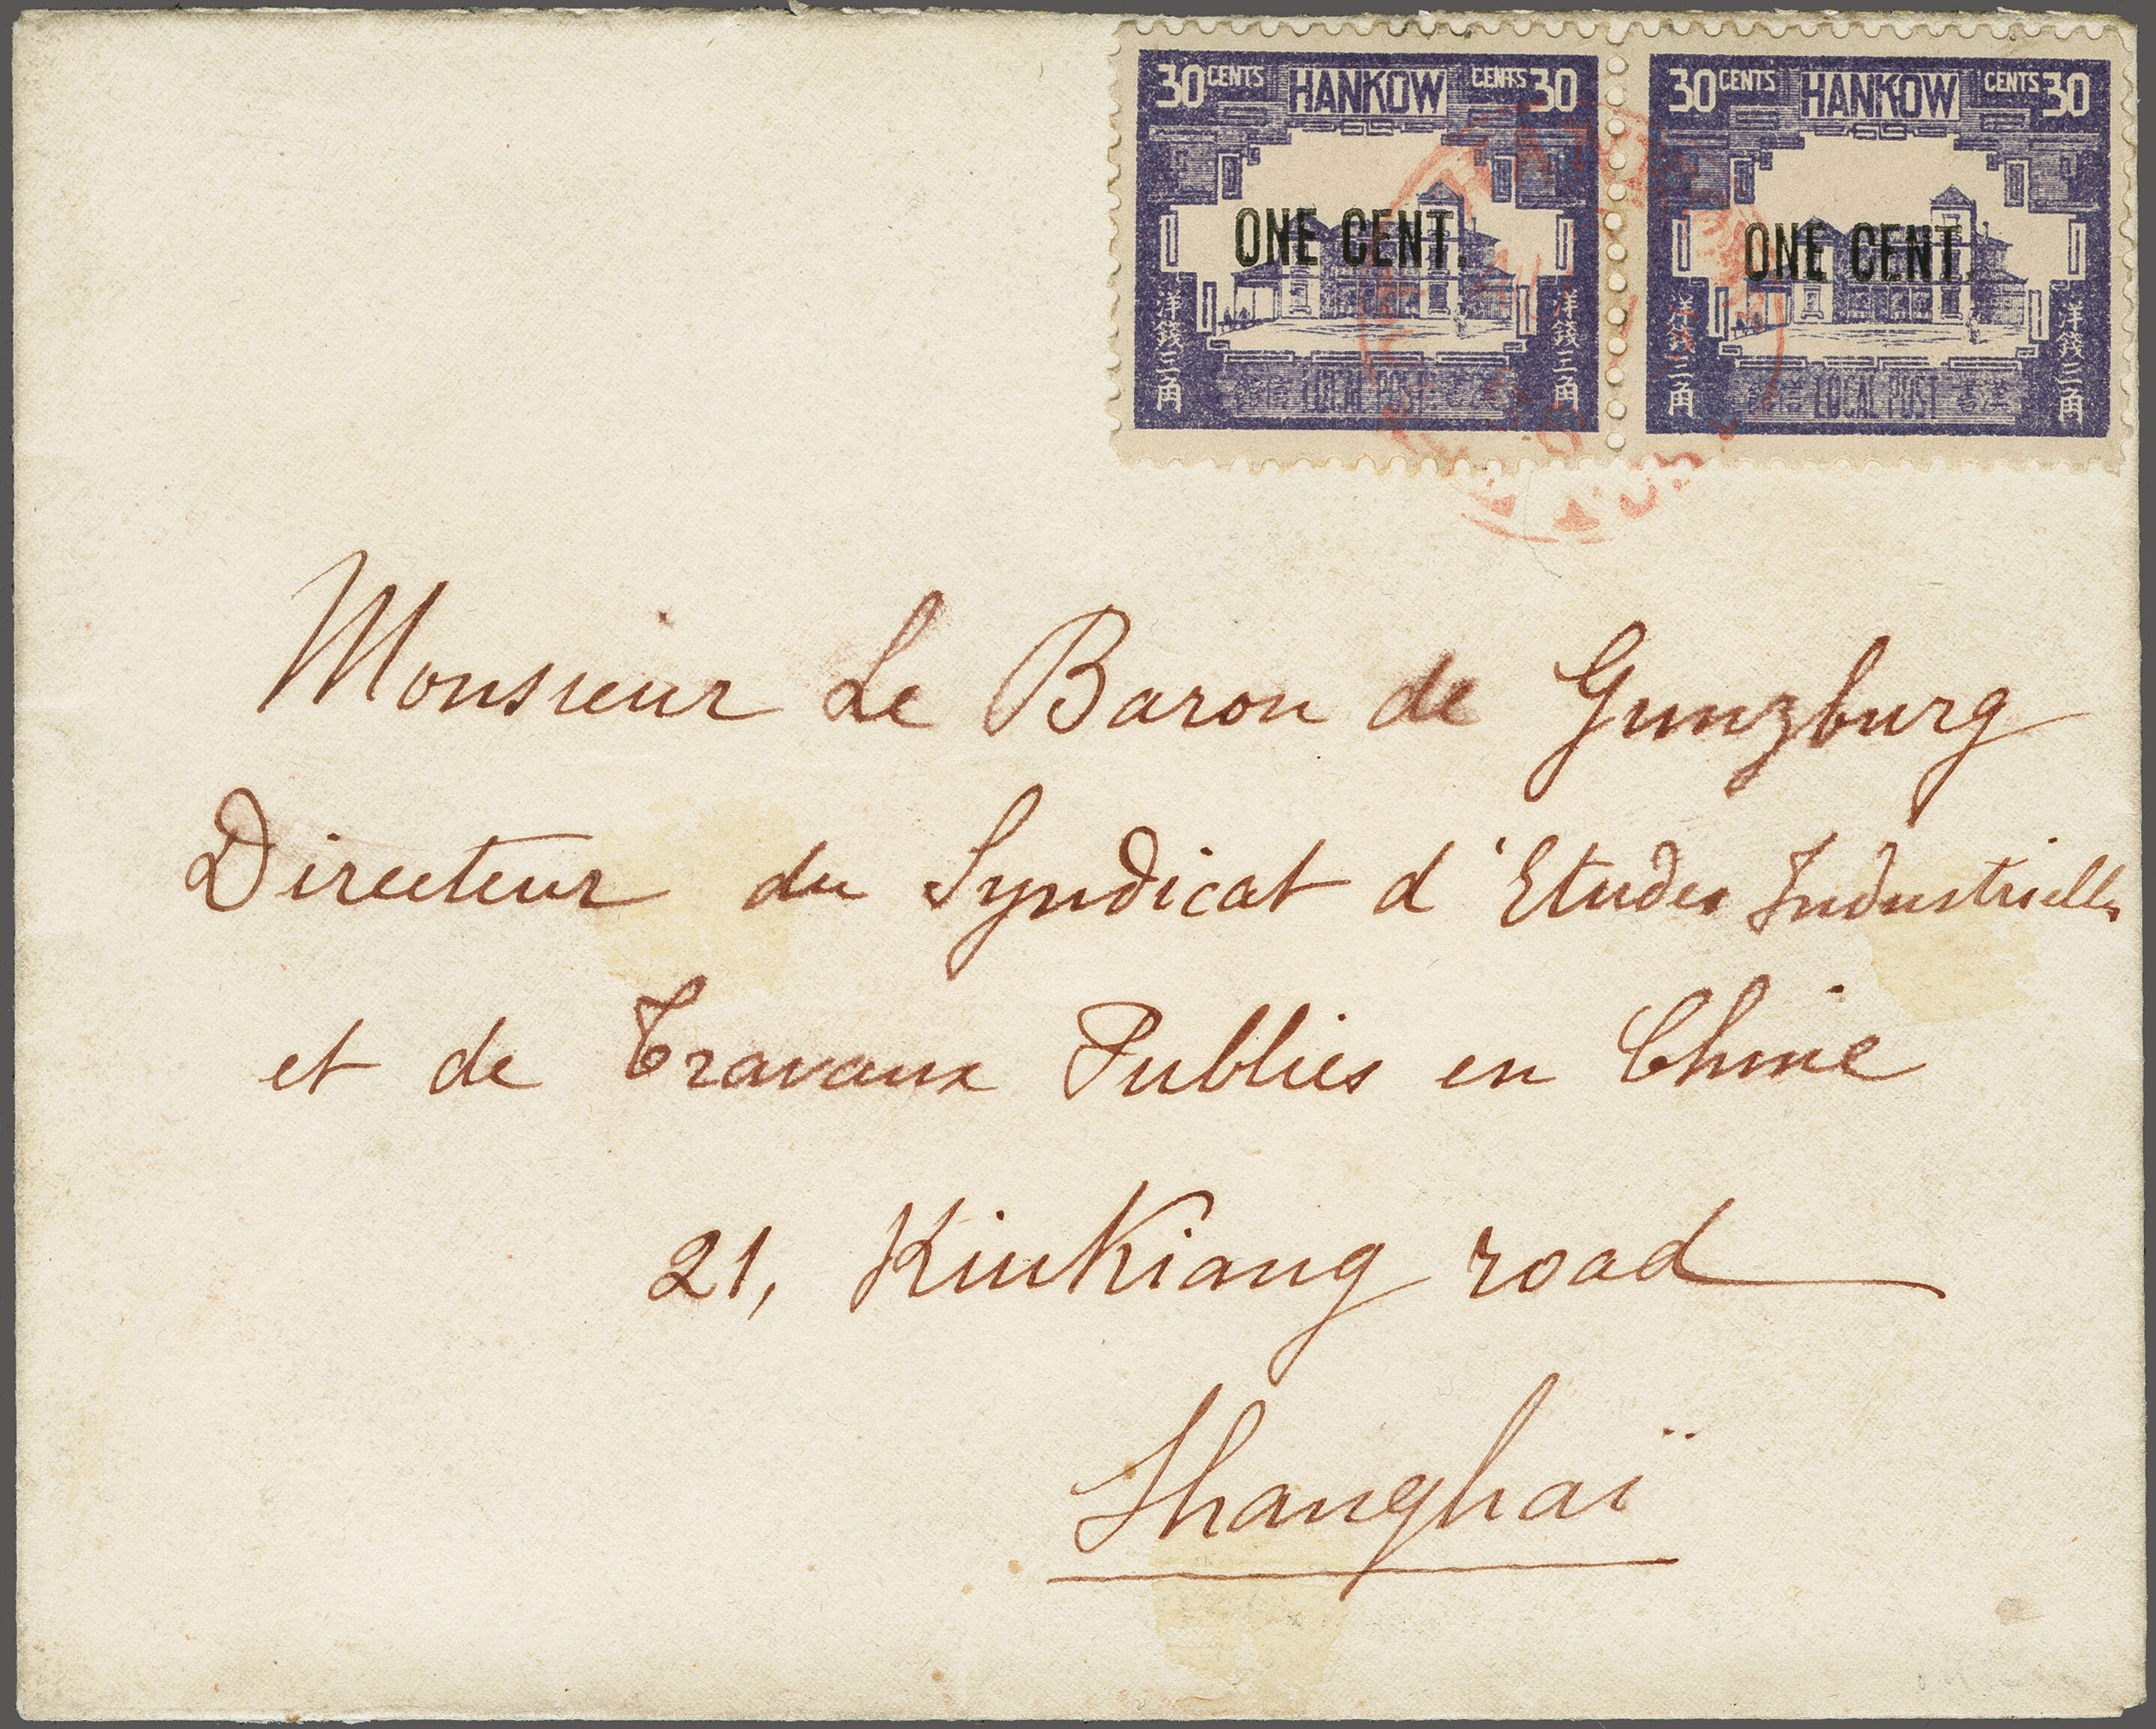 30 CENTS HANKOW CENTS 30
ONE CENT.
洋錢三角
洋錢三角
LOCAL POST
30 CENTS HANKOW CENTS 30
ONE CENT.
洋錢三角
洋錢三角
LOCAL POST
Monsieur Le Baron de Gunzburg
Directeur du Syndicat d'Etudes Industrielles
et de Travaux Publics en Chine
21, KiuKiang road
Shanghaï